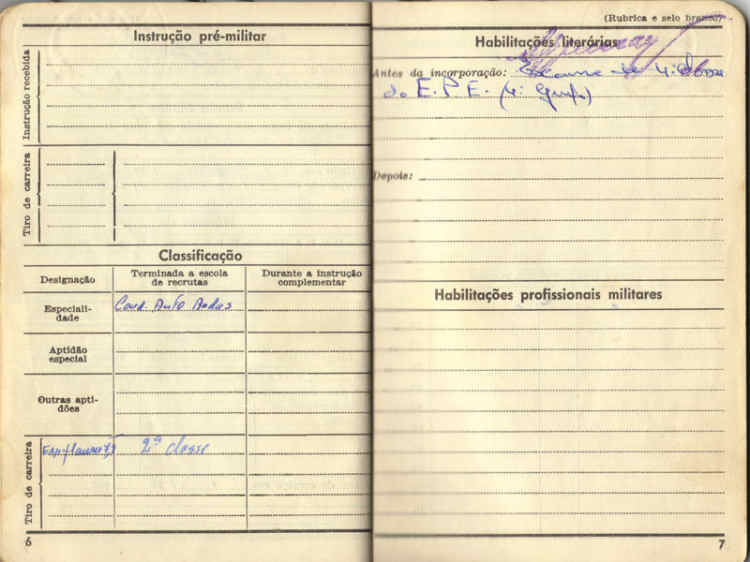 Instrução pré-militar
Instrução recebida
Tiro de carreira
Classificação
Designação
Terminada a escola de recrutas
Durante a instrução complementar
Especiali-
dade
Cond. Auto Rodas
Aptidão
especial
Outras apti-
dões
Tiro de carreira
2ª classe
6
(Rubrica e selo branco)
Habilitações literárias
Antes da incorporação: Exame de 4ª classe
do E. P. E. (4º Grupo)
Depois:
Habilitações profissionais militares
7